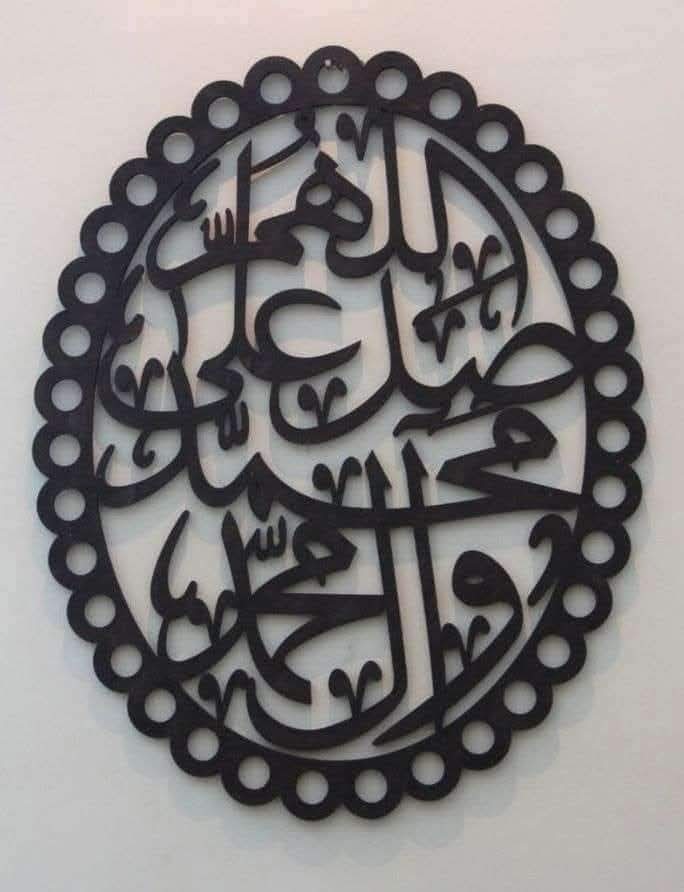 اللهم
صل على
محمد
وال محمد